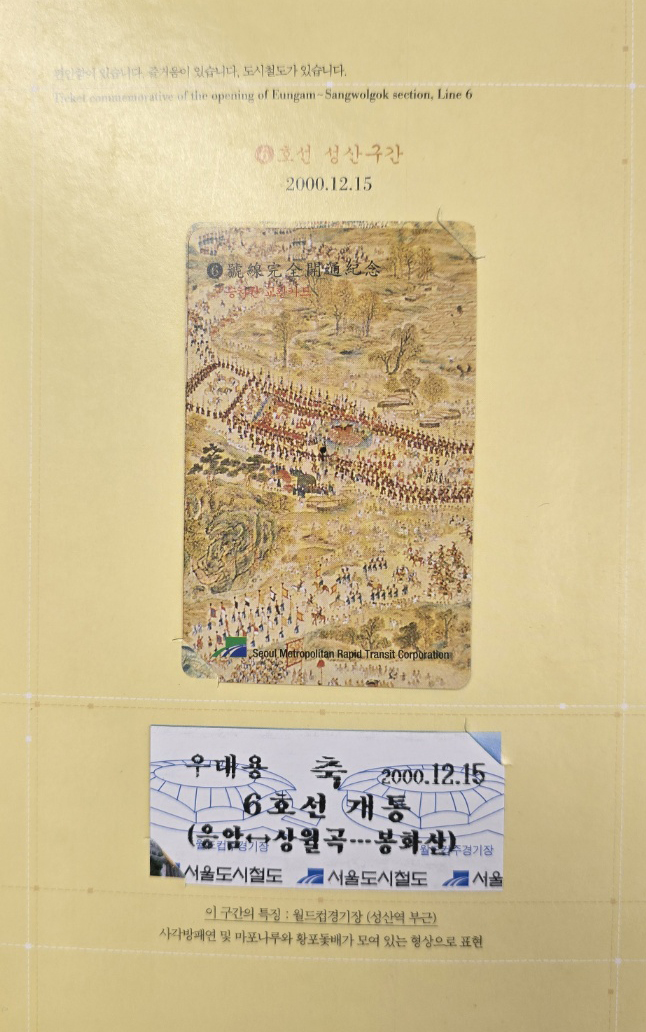 편안함이 있습니다. 즐거움이 있습니다, 도시철도가 있습니다.
Ticket commemorative of the opening of Eungam~Sangwolgok section, Line 6
6호선 성산구간
2000.12.15
6號線完全開通紀念
Seoul Metropolitan Rapid Transit Corporation
우대용 축 2000.12.15
6호선 개통
(응암↔상월곡---봉화산)
월드컵경기장 월드컵주경기장
서울도시철도 서울도시철도 서울
이 구간의 특징 : 월드컵경기장 (성산역 부근)
사각방패연 및 마포나루와 황포돛배가 모여 있는 형상으로 표현